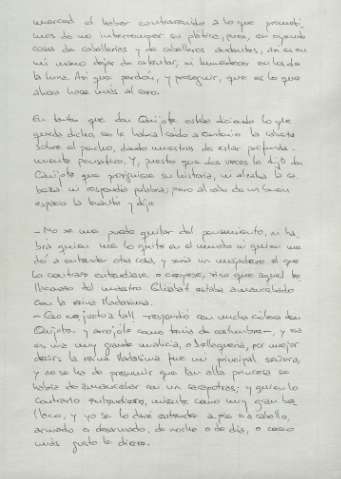 merced el haber contravenido a lo que prometi-
mos de no interromper su plática, pues, en oyendo
cosas de caballerías y de caballeros andantes, así es en
mi mano dejar de
la luna. Así que, perdón, y proseguir, que es lo que
ahora hace más al caso.
En tanto que don Quijote estaba diciendo lo que
queda dicho, se le había caído a Cardenio la cabeza
sobre el pecho, dando muestras de estar profunda-
mente pensativo. Y, puesto que dos veces le dijo don
Quijote que prosiguiese su historia, ni alzaba la ca-
beza ni respondía palabra; pero al cabo de un buen
espacio la levantó y dijo:
- No se me puede quitar del pensamiento, ni ha-
brá quien me lo quite en el mundo ni quien me
dé a entender otra cosa, y sería un majadero el que
lo contrario entendiese o creyese, sino que aquel
del maestro Elisabat estaba amancebado
con la reina Madásima.
- Eso no, ¡voto a tal! -respondió con mucha cólera don
Quijote- y arrojóle como tenía de costumbre-, y esa
es una muy grande malicia, o bellaquería, por mejor
decir: la reina Madásima fue muy principal señora,
y no se ha de presumir que tan alta princesa se
había de amancebar con un sacapotras; y quien lo
contrario entendiere, miente como muy gran be-
llaco, y yo se lo daré a entender a pie o a caballo,
armado o desarmado, de noche o de día, o como
más gusto le diere.